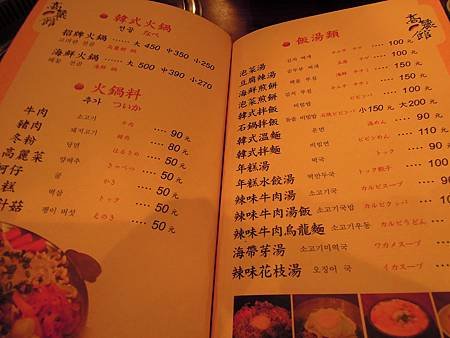 高麗館
韓式火鍋
전골 なべ
招牌火鍋 ‥‥‥ 大 450 中 350 小 250
海鮮火鍋 ‥‥‥ 大 500 中 390 小 270
火鍋料
추가 ついか
牛肉 소고기 牛肉 ‥‥ 90 元
豬肉 돼지고기 豚肉 ‥‥ 80 元
冬粉 당면 はるさめ ‥‥ 50 元
高麗菜 양배추 きゃべつ ‥‥ 50 元
蚵仔 굴 かき ‥‥ 50 元
糕 떡살 トック ‥‥ 50 元
針菇 팽이 버섯 えのき ‥‥ 50 元
高麗館
飯湯類
泡菜湯 100 元
豆腐辣湯 100 元
海鮮煎餅 100 元
泡菜煎餅 100 元
韓式拌飯 비빔밥 100 元
石鍋拌飯 돌솥 비빔밥 小 150 元 大 200 元
韓式溫麵 온면 90 元
韓式拌麵 110 元
年糕湯 떡국 90 元
年糕水餃湯 떡만두국 トック餃子 100 元
辣味牛肉湯 소고기국 カルビスープ
辣味牛肉湯飯 소고기국밥 カルビクッパ
辣味牛肉烏龍麵 소고기우동 カルビうどん
海帶芽湯 소고기미역국 ワカメスープ
辣味花枝湯 오징어 국 イカスープ